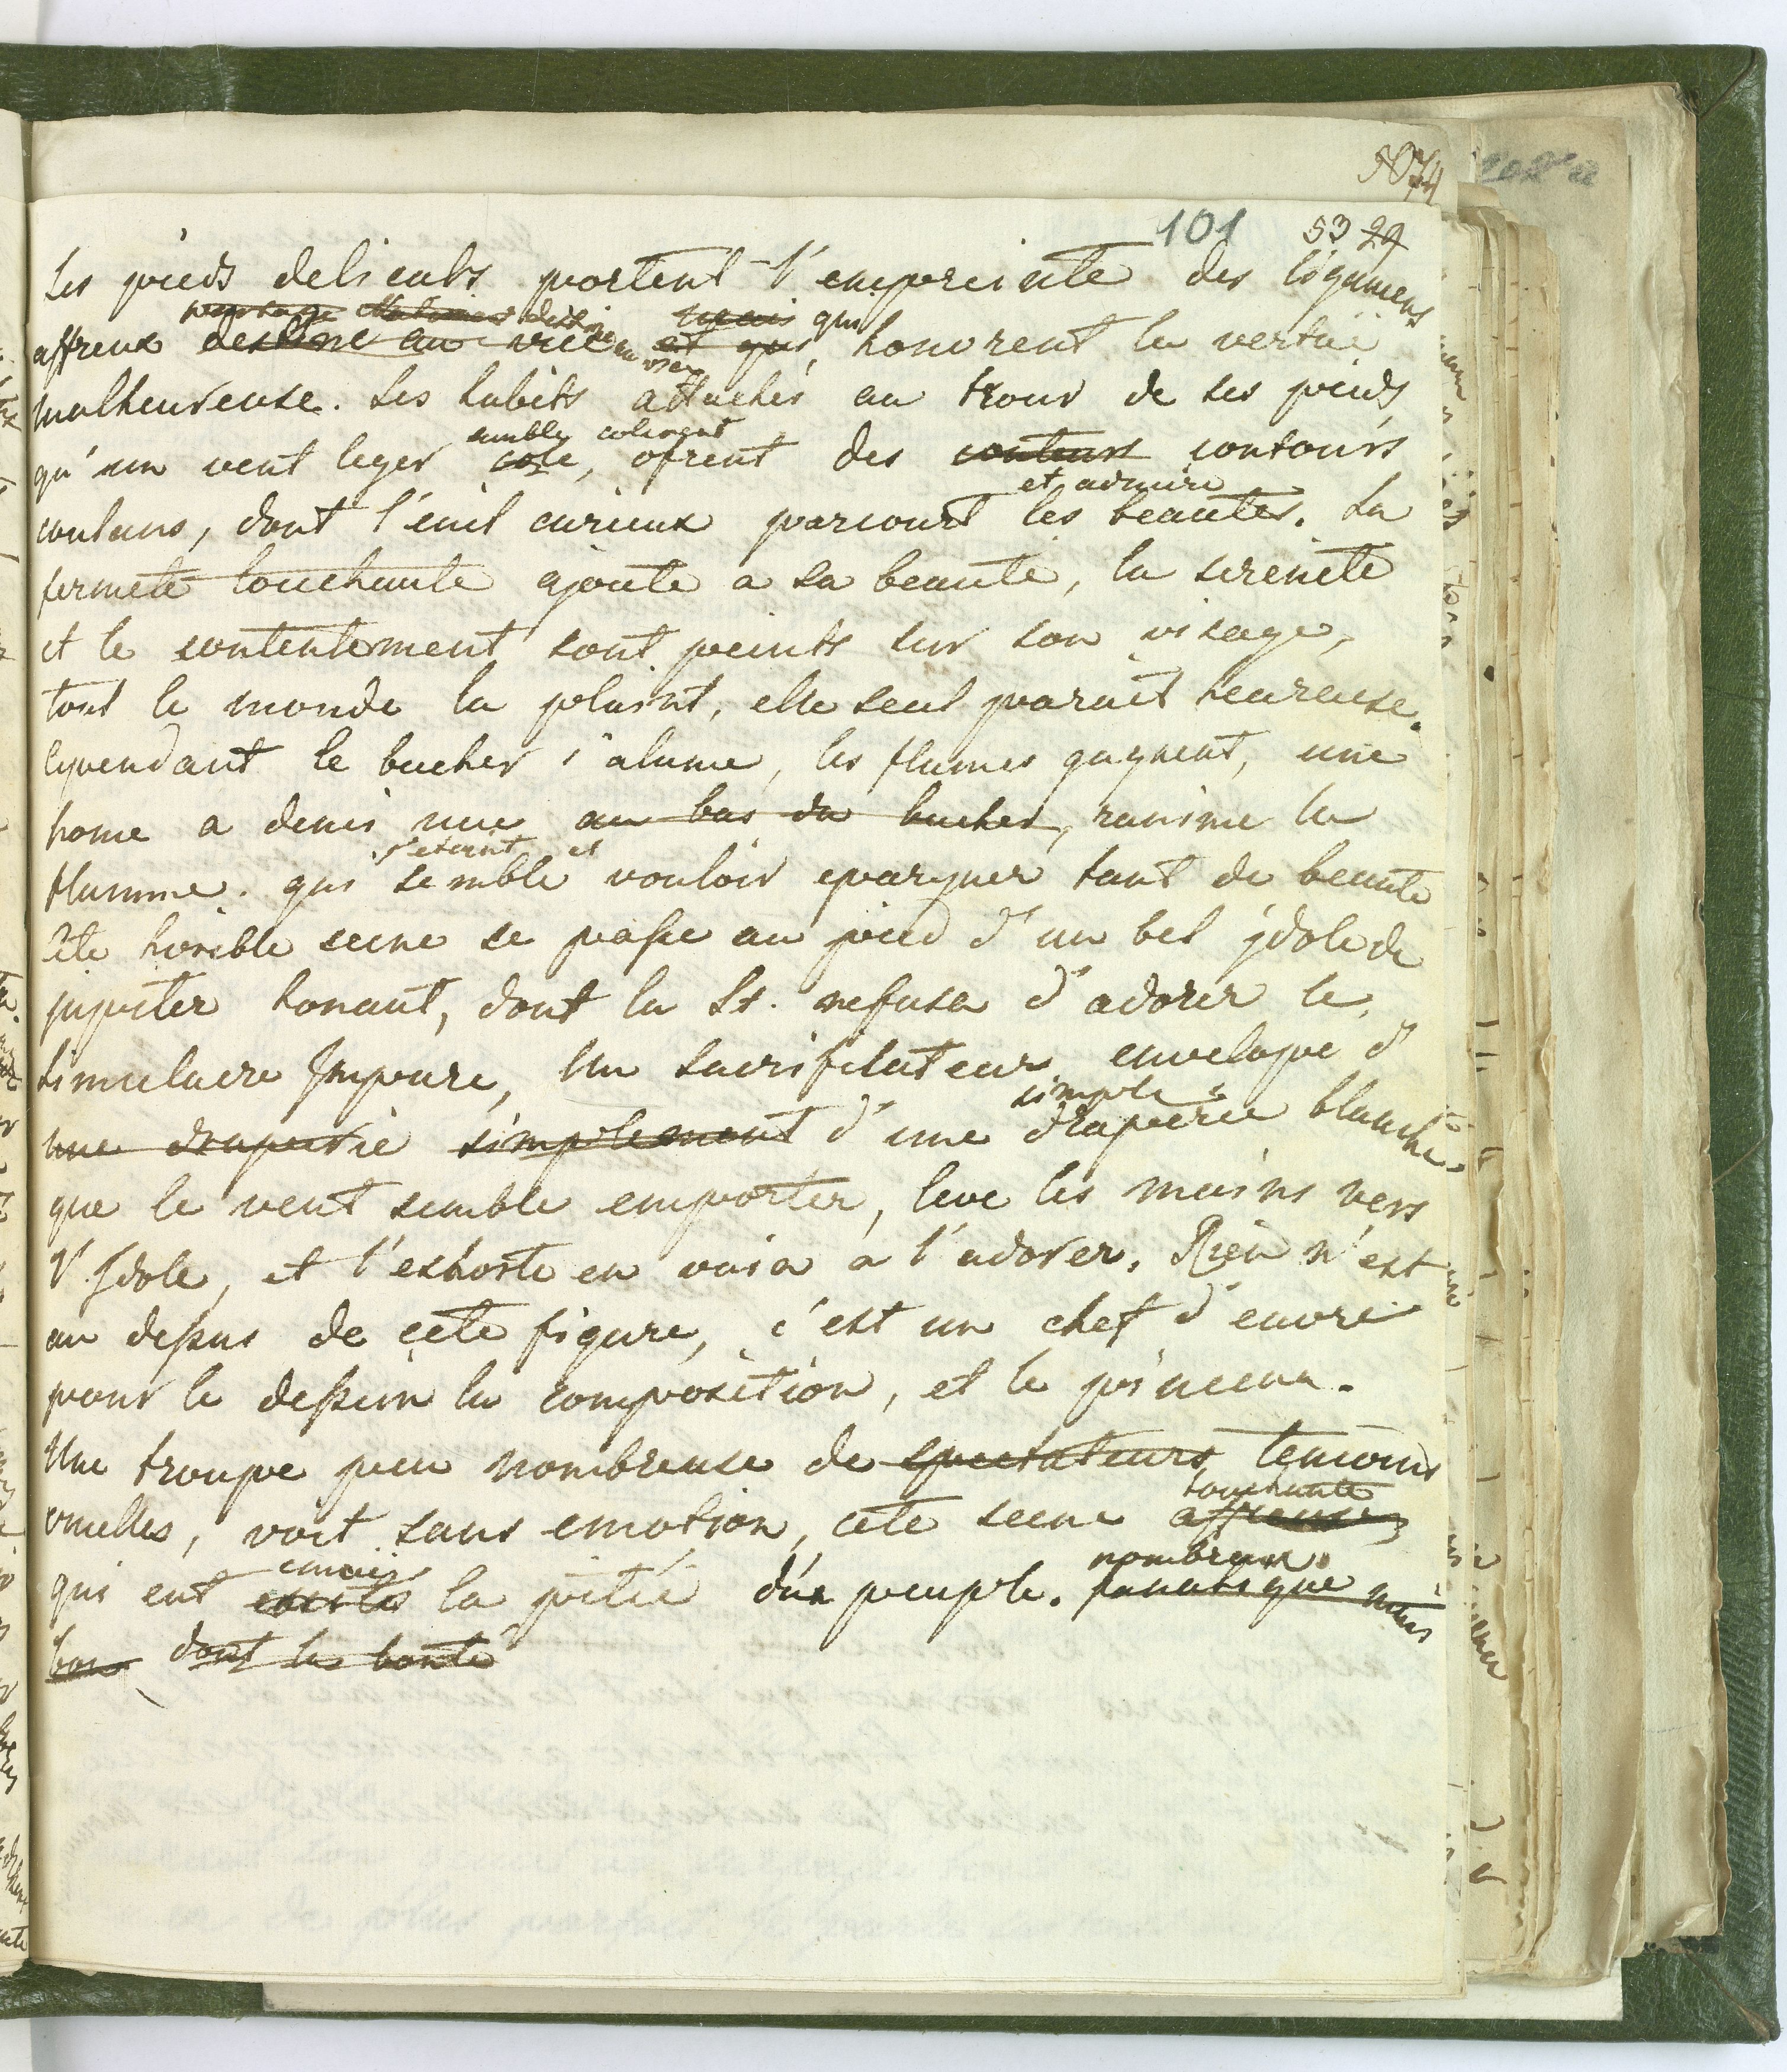 5074
101 53 29
Ses pieds delicats portent l'empreinte des ligamens
qui
affreux destiné au vice et qui honorent la vertue
malheureuse. Ses habits attachés au trour de ses pieds
semble
qu'un vent leger cole, ofrent des contours contours
et admire
coulans, dont l'euil curieux parcourt les beautés. La
fermeté touchante ajoute a sa beauté, la serenité
et le contentement sont peints sur son visage,
tout le monde la plaint, elle seul parait heureuse.
Cependant le bucher s'alume, les flames gagnent, une
home a demi nue au bas du bucher, ranime la
s'eteint et
flamme. qui semble vouloir epargner tant de beauté
Cete horible scene se passe au pied d'un bel jdole de
jupiter tonant, dont la St. refusa d'adorer le
Simulacre Jmpure, Un Sacrificateur envelope d'
simple
une draperie simplement d'une draperie blanche
que le vent semble emporter, leve les mains vers
l'Jdole, et l'exhorte en vain a l'adorer. Rien n'est
au dessus de cete figure, c'est un chef d'euvre
pour le dessein la composition, et le pinceau.
Une troupe peu nombreuse de spectateurs temoins
touchante
cruelles, voit sans emotion, cete scene affreuse
nombreux
qui eut excité la pitié d'un peuple. fanatique mais
bon dont la bonté